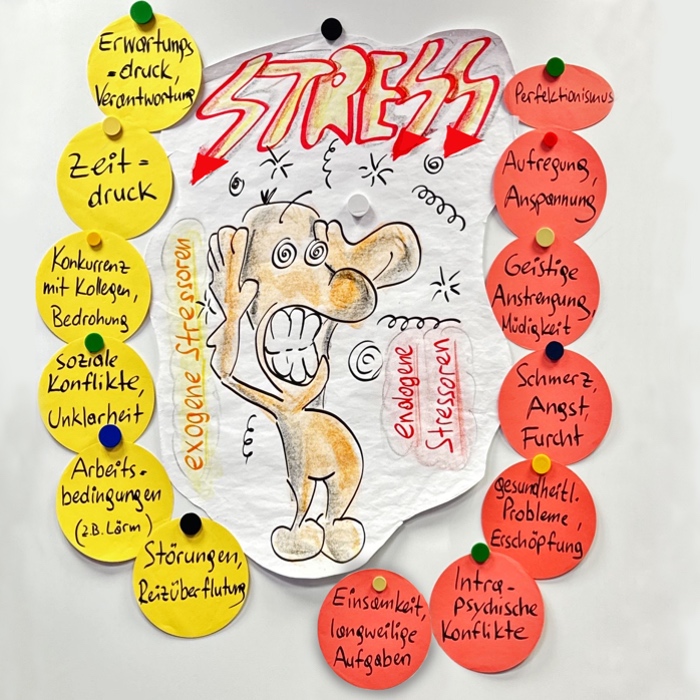 STRESS
Erwartungs
=druck,
Verantwortung
Zeit=
druck
Konkurrenz
mit Kollegen,
Bedrohung
soziale
Konflikte,
Unklarheit
Arbeits-
bedingungen
(z.B. Lärm)
Störungen,
Reizüberflutung
exogene Stressoren
endogene
Stressoren
Perfektionismus
Aufregung,
Anspannung
Geistige
Anstrengung,
Müdigkeit
Schmerz,
Angst,
Furcht
gesundheitl.
Probleme,
Erschöpfung
Intra-
psychische
Konflikte
Einsamkeit,
langweilige
Aufgaben